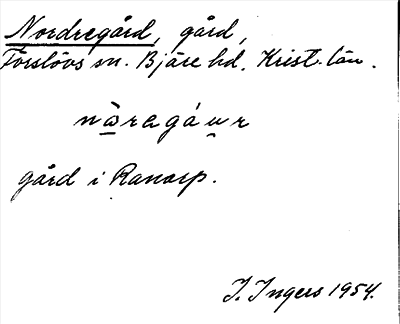 Nordregård, gård,
Förslövs sn. Bjäre hd. Krist. län.
gård i Ranarp.
I. Ingers 1954.